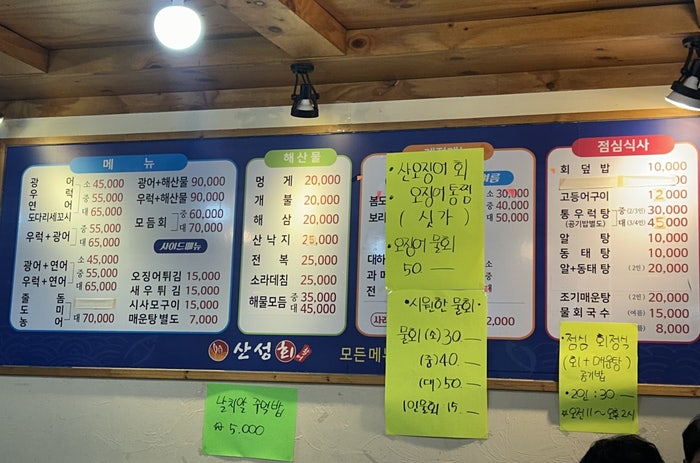 메뉴
광 어 소 45,000
우 럭 중 55,000
도다리세꼬시 대 65,000
우럭+광어 중 55,000
대 65,000
광어+연어 소 45,000
우럭+연어 중 55,000
대 65,000
줄 돔
도 미
농 어 대 70,000
광어+해산물 90,000
우럭+해산물 90,000
모듬회 중 60,000
대 70,000
사이드메뉴
오징어튀김 15,000
새우튀김 15,000
시사모구이 15,000
매운탕별도 7,000
해산물
멍 게 20,000
개 불 20,000
해 삼 20,000
산 낙 지 25,000
전 복 25,000
소라데침 25,000
해물모듬 중 35,000
대 45,000
소 30,000
중 40,000
대 50,000
봄도
보리
대하
과 메
전
2,000
산오징어 회
오징어통찜
(싯가)
오징어 물회
50.—
시원한 물회
물회 (소) 30.—
(중) 40.—
(대) 50.—
1인물회 15.—
점심식사
회 덮 밥 10,000
고등어구이 12,000
통우럭탕 중(2/3인) 30,000
(공기밥별도) 대(3/4인) 45,000
알 탕 10,000
동 태 탕 10,000
알+동태탕 (2인) 20,000
조기매운탕 (2인) 20,000
물회국수 (여름) 15,000
8,000
점심 회정식
(회+매운탕)
공기밥
2인 : 30.—
*오전11~오후2시
산성회
모든메뉴
날치알 주먹밥
₩ 5.000